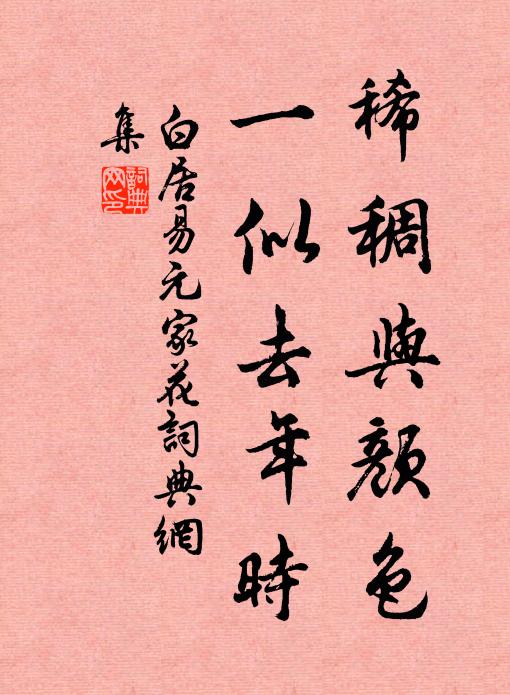 稀稠與顏色
一似去年時
白居易元家花詞典網
集
詞典
网印